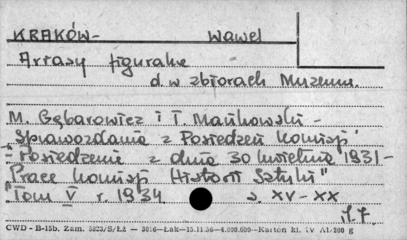 KRAKÓW- Wawel
Arrasy figuralne
d. w zbiorach Muzeum.
M. Gębarowicz i T. Mańkowski -
Sprawozdania z Posiedzeń Komisji
- Posiedzenie z dnia 30 kwietnia 1931 -
"Prace Komisji Historii Sztuki"
Tom V r. 1934 s. XV - XX
CWD - B-15b. Zam. 5823/S/Łż — 3016—Łak—15.11.56—4.000.000—Karton kl. IV A1/200 g